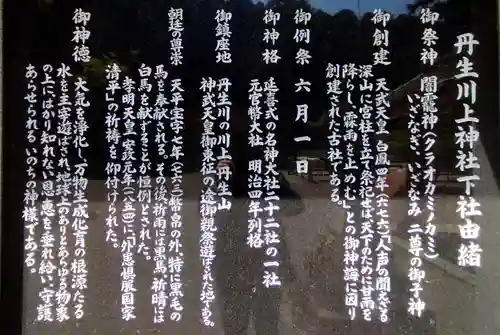 丹生川上神社下社由緒
御祭神　闇龗神(クラオカミノカミ)
いざなぎ、いざなみ　二尊の御子神
御創建　天武天皇　白鳳四年(六七六)「人声の聞えざる
深山に宮柱を立て祭祀せば、天下のために甘雨を
降らし、霖雨を止めむ」との御神誨に因り
創建された古社である。
御例祭　六月一日
御神格　延喜式の名神大社二十二社の一社
元官幣大社　明治四年列格
御鎮座地　丹生川の川上丹生山
神武天皇御東征の途御親祭遊ばされた地である。
朝廷の尊崇　天平宝字七年(七六三)幣帛の外、特に黒毛の
馬を奉献される。その後祈雨には黒馬、祈晴には
白馬を献ずることが恒例とされた。
孝明天皇、安政元年(一八五四)に「外患惧服国家
清平」の祈祷を仰付けられた。
御神徳　大気を浄化し、万物生成化育の根源たる
水を主宰遊ばされ、地球上のありとあらゆる物象
の上にはかり知れない恩恵を垂れ給い、守護
あらせられるいのちの神様である。